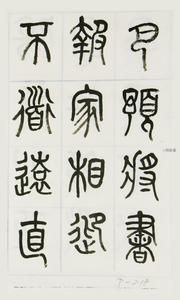 巴預將書
報家相迎
不道遠直